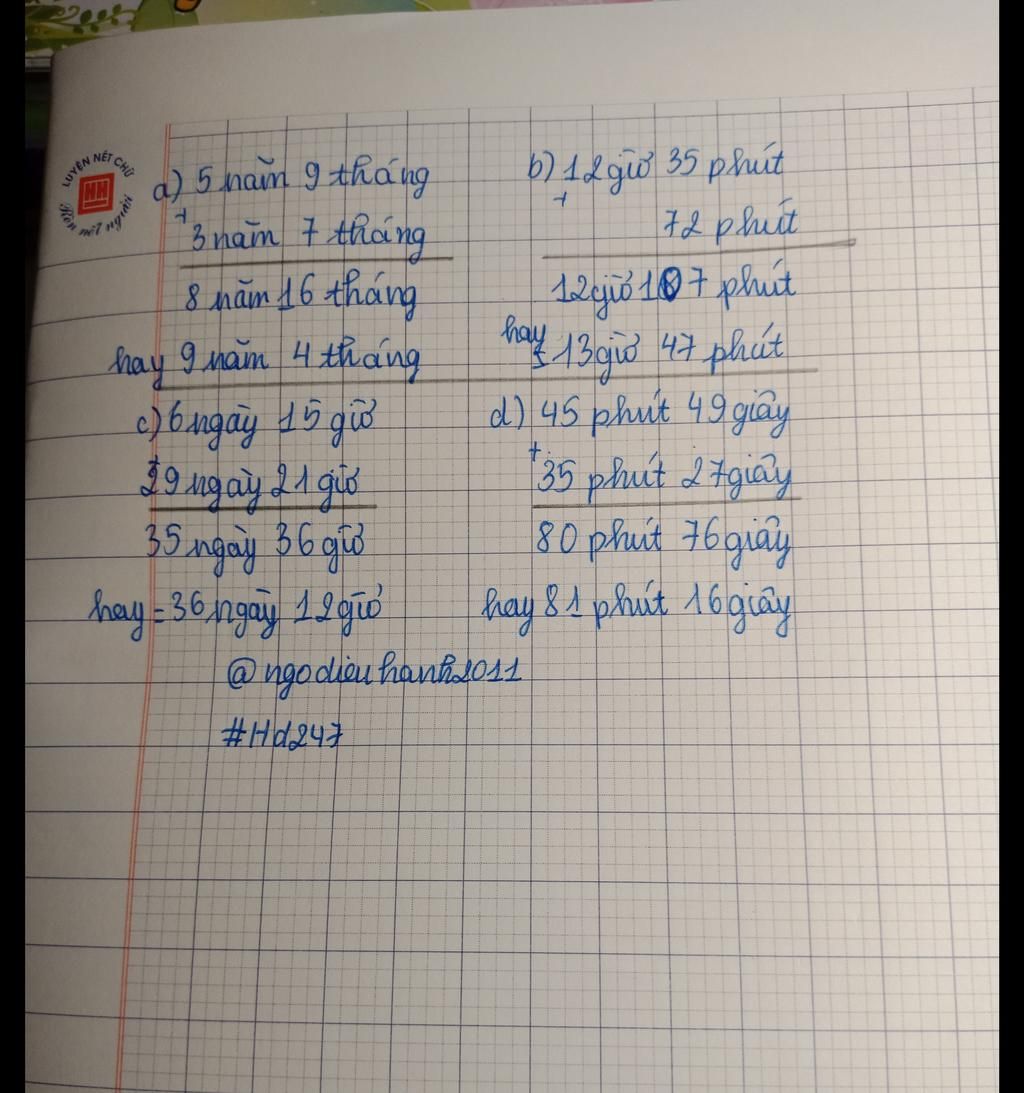 LUYỆN NÉT CHỮ
HH
Rèn nết người
a) 5 năm 9 tháng
+
3 năm 7 tháng
8 năm 16 tháng
hay 9 năm 4 tháng
b) 12 giờ 35 phút
+
72 phút
12 giờ 107 phút
hay = 13 giờ 47 phút
c) 6 ngày 15 giờ
+
29 ngày 21 giờ
35 ngày 36 giờ
hay = 36 ngày 12 giờ
d) 45 phút 49 giây
+
35 phút 27 giây
80 phút 76 giây
hay 81 phút 16 giây
@ngodieuhanh2011
#Hd247